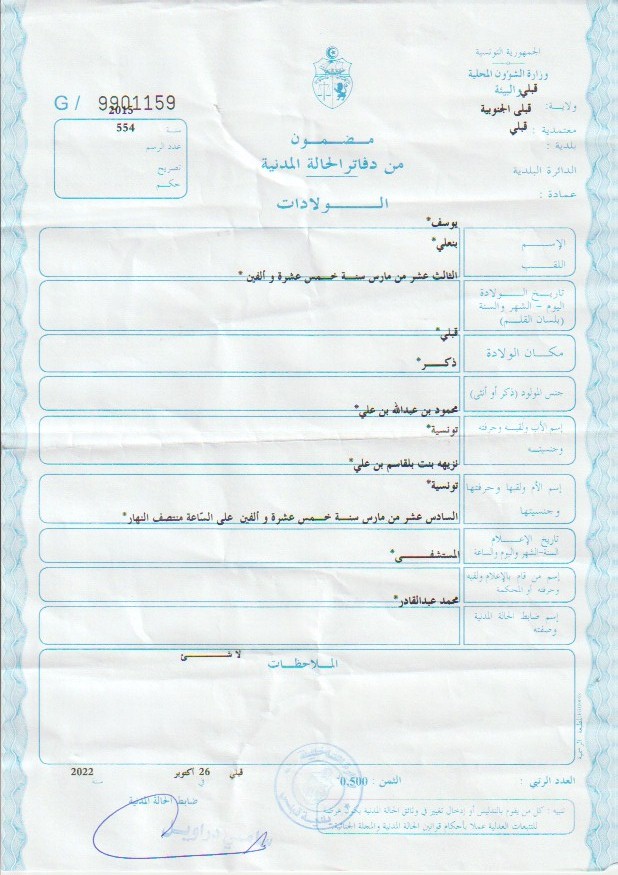 الجمهورية التونسية
وزارة الشؤون المحلية
والبيئة
قبلي
ولاية: قبلي الجنوبية
معتمدية: قبلي
بلدية:
الدائرة البلدية
عمادة:
G/ 9901159
2015
سنة
554
عدد الرسم
تصريح
حكم
مضمون
من دفاتر الحالة المدنية
الولادات
يوسف*
الإسم
بنعلي*
اللقب
الثالث عشر من مارس سنة خمس عشرة و ألفين *
تاريخ الولادة
اليوم - الشهر والسنة
(بلسان القلم)
قبلي*
مكان الولادة
ذكر*
جنس المولود (ذكر أو أنثى)
محمود بن عبدالله بن علي*
إسم الأب ولقبه وحرفته
تونسية*
وجنسيته
نزيهه بنت بلقاسم بن علي*
إسم الأم ولقبها وحرفتها
تونسية*
وجنسيتها
السادس عشر من مارس سنة خمس عشرة و ألفين على السّاعة منتصف النهار*
تاريخ الإعلام
السنة-الشهر واليوم والساعة
المستشفى*
إسم من قام بالإعلام ولقبه
وحرفته أو المحكمة
محمد عبدالقادر*
إسم ضابط الحالة المدنية
وصفته
لا شئ
الملاحظات
المطبعة الرسمية
قبلي 26 أكتوبر 2022
في
سنة
العدد الرتبي: الثمن: 0,500
ضابط الحالة المدنية
تنبيه: كل من يقوم بالتدليس أو إدخال تغيير في وثائق الحالة المدنية يكون عرضة
للتتبعات العدلية عملا بأحكام قوانين الحالة المدنية والمجلة الجنائية.